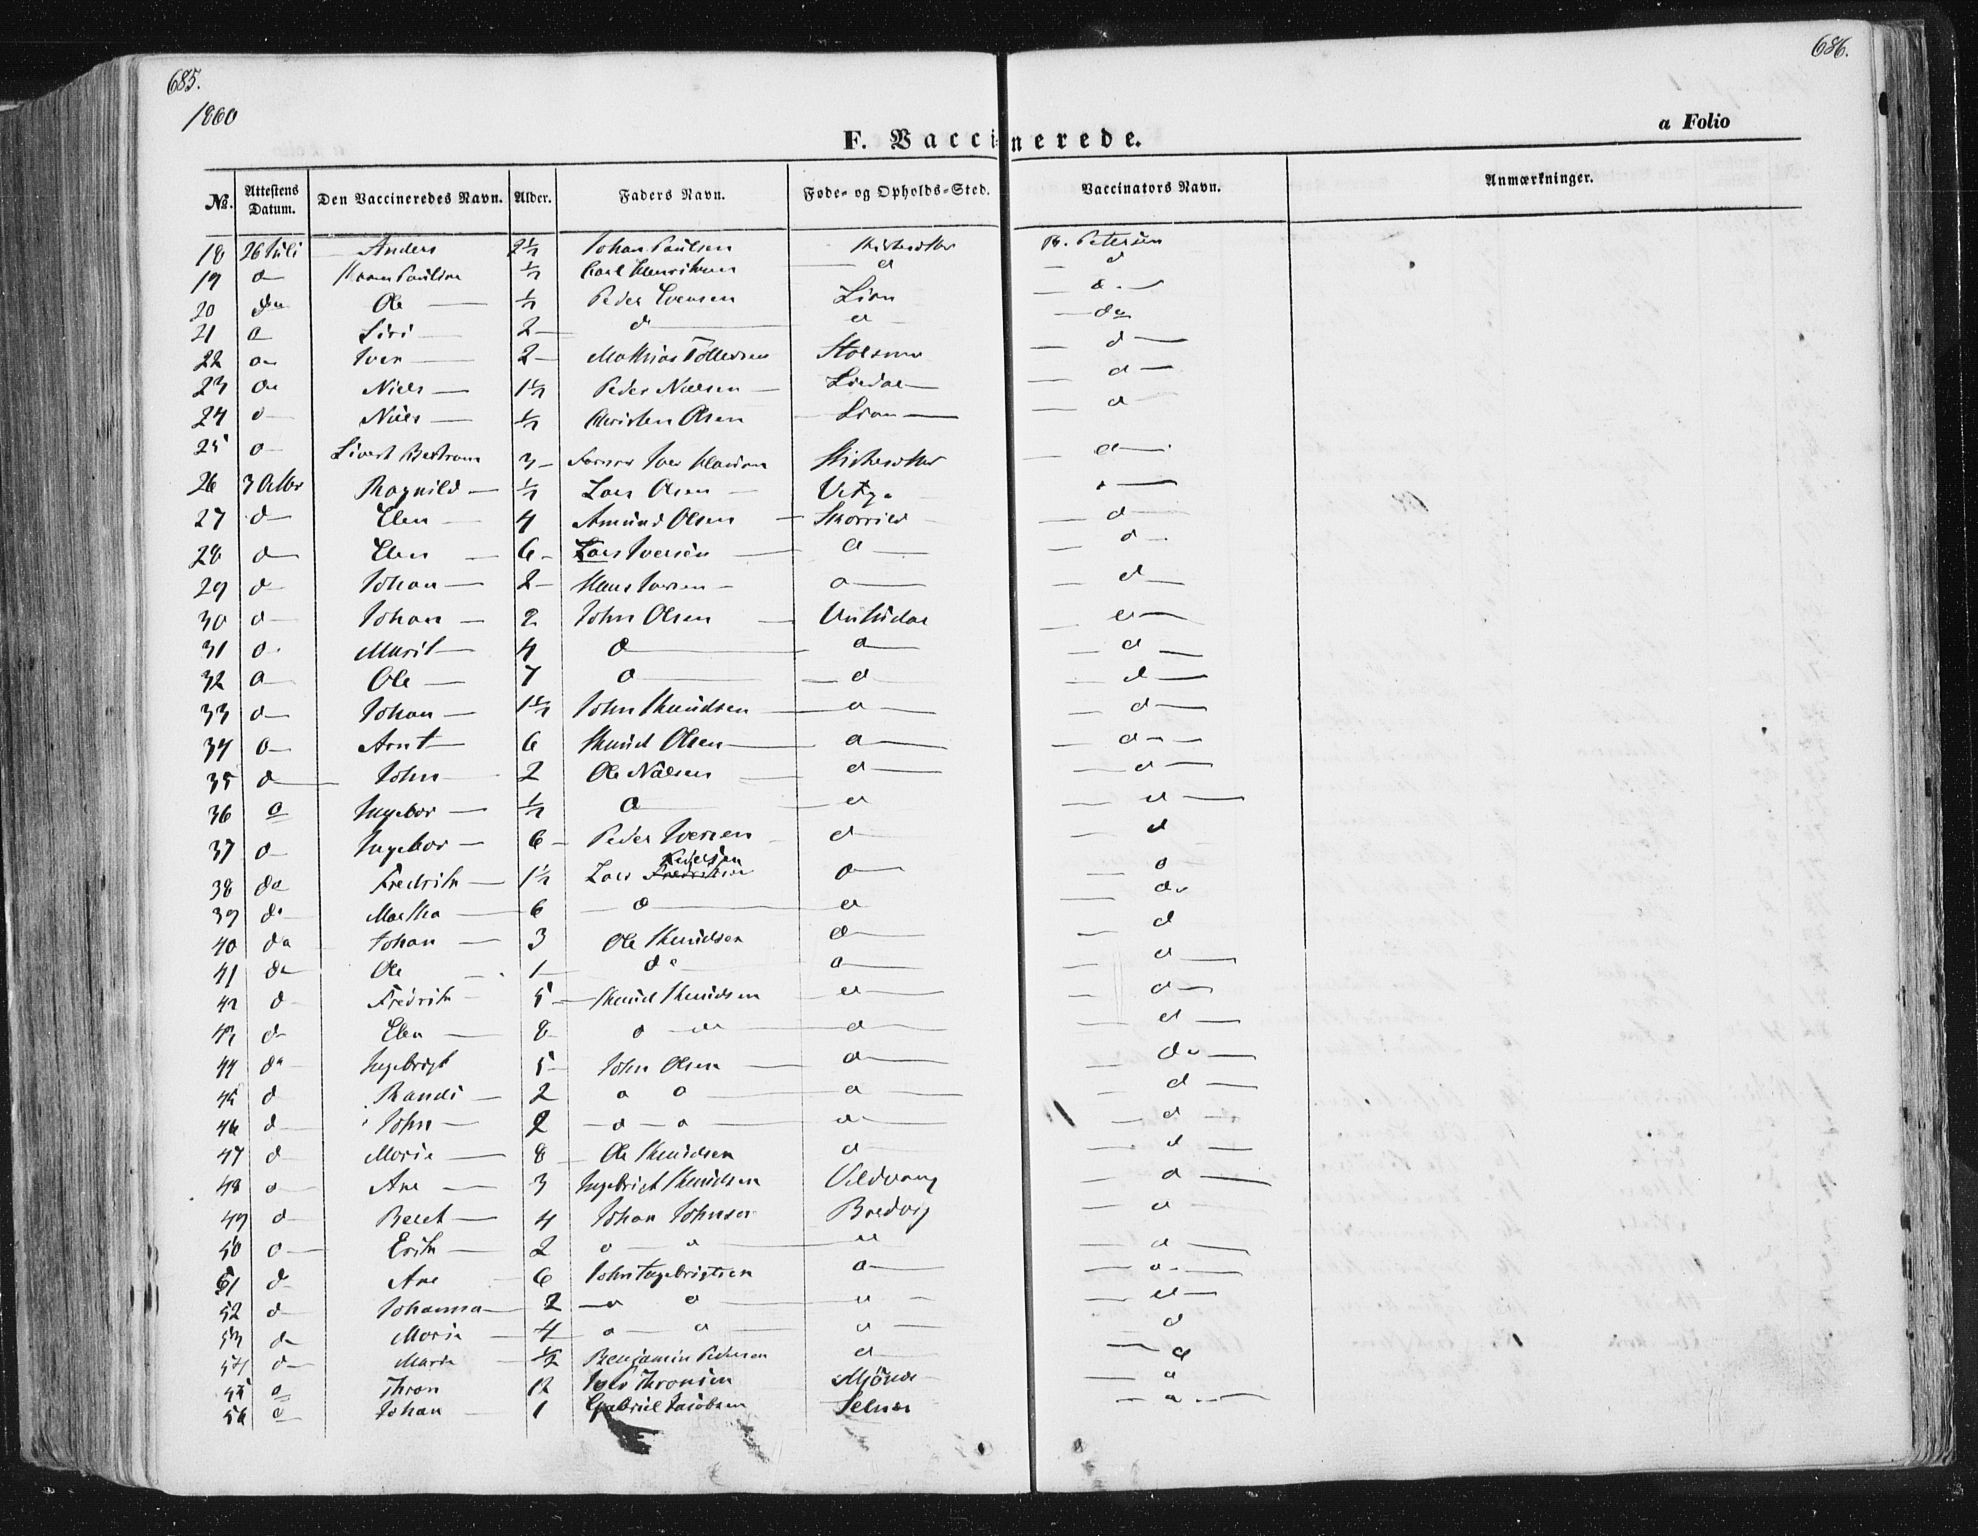 685.
686.
1860
a Folio
F. Vaccinerede.
No. Attestens Datum. Den Vaccineredes Navn. Alder. Faders Navn. Føde- og Opholds-Sted. Vaccinators Navn. Anmærkninger.
18 26 Juli Anders 2½ Johan Paulsen Petersen
19 d Paulina ½ Carl Henriksen d d
20 do Ole ½ Peder Evensen Lian d
21 d Siri 2 d d do
22 d Iver 2 Mathias Tollefsen d
23 d Niels 1½ Peder Nielsen d
24 d Niels ½ Christen Olsen Lian d
25 d Sivert Bertram 3 d
26 3 Octbr Ragnild ½ Lars Olsen d
27 d Elen 4 Amund Olsen d
28 d Elen 6 Lars Iversen d d
29 d Johan 2 Hans Iversen d d
30 d Johan 2 John Olsen d
31 d Marit 4 d d d
32 d Ole 7 d d d
33 d Johan 1½ John Knudsen d d
34 d Arnt 6 Knud Olsen d d
35 d John 2 Ole Nielsen d d
36 d Ingebor ½ d d d
37 d Ingebor 6 Peder Iversen d d
38 do Fredrik 1½ Lars Pedersen d d
39 do Martha 6 d d do
40 do Johan 3 Ole Knudsen d d
41 do Ole 1 do d d
42 d Fredrik 5 Knud Knudsen d d
43 d Elen 8 d d d
44 do Ingebrigt 5 John Olsen d do
45 d Randi 2 d d d d
46 d John 2 d d d d
47 d Marie 8 Ole Knudsen d d
48 d Ane 3 Ingebrigt Knudsen Veldvang d
49 d Beret 4 Johan Johnsen Bredvig d
50 d Erik 2 d d d d
51 d Ane 6 John Ingebrigtsen d d
52 d Johanna 2 d d d d
53 d Marie 4 d d d d
54 d Marie ½ Benjamin Pedersen d d
55 d Thron 12 Iver Thronsen d
56 d Johan 1 Gabriel Jacobsen Selnes d